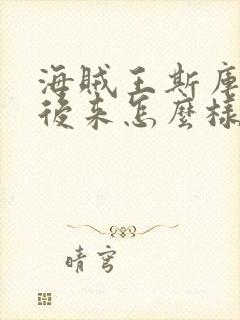 海賊王斯庫
後来怎麼樣
晴穹